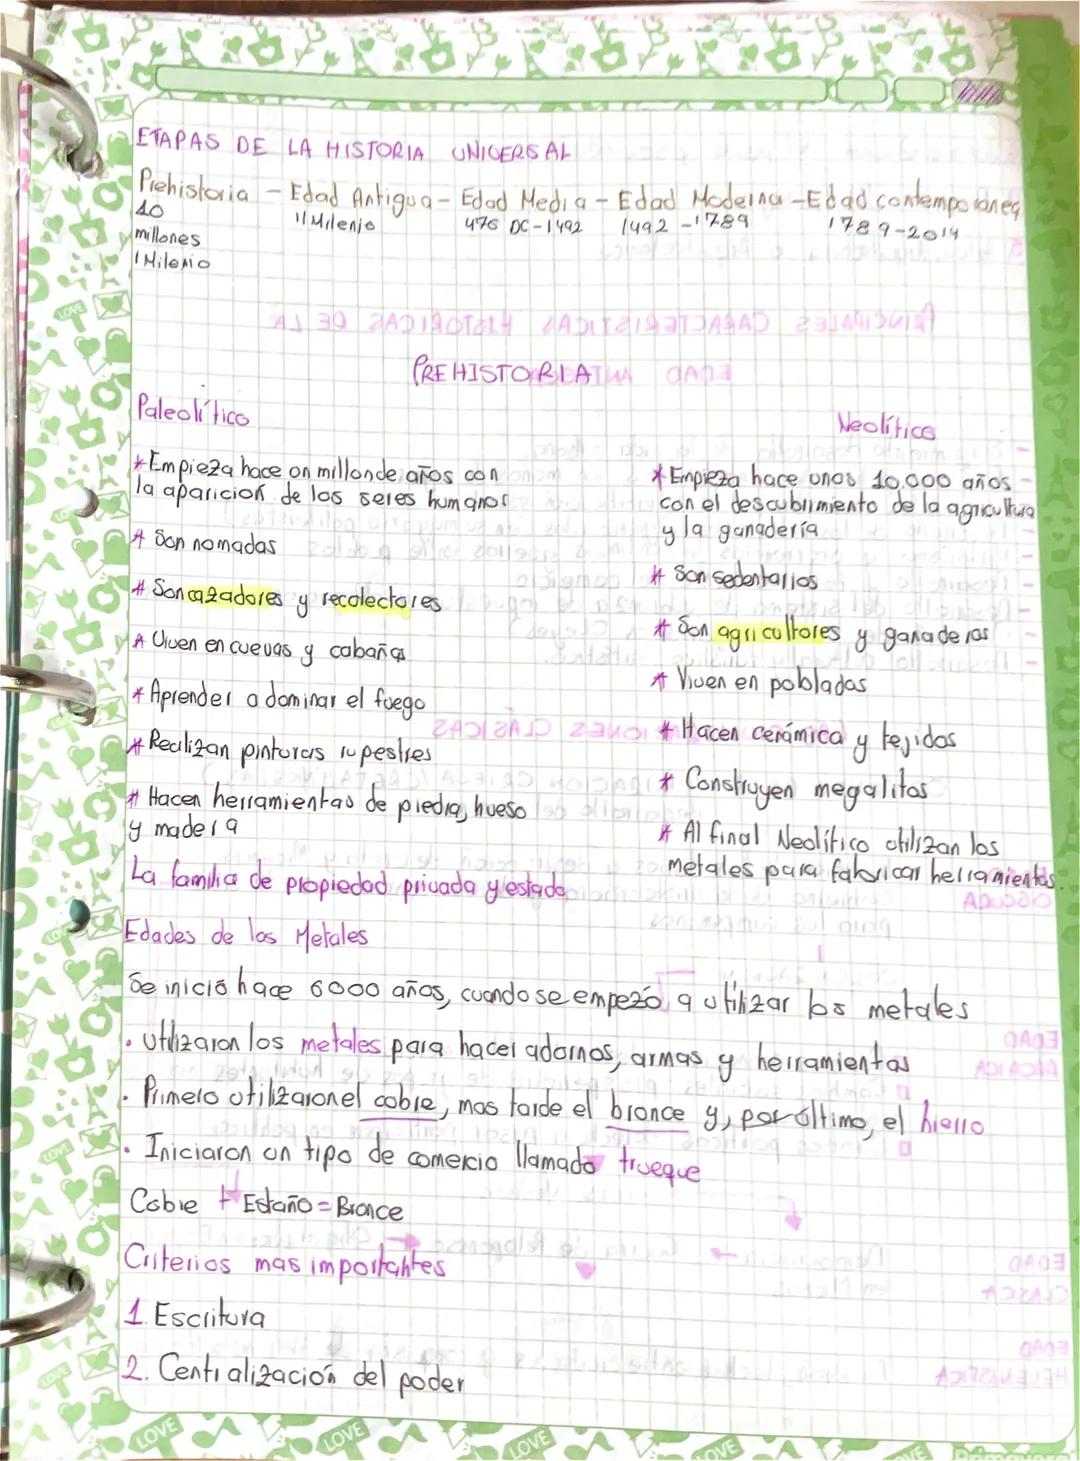 ETAPAS DE LA HISTORIA UNIVERSAL
Prehistoria - Edad Antigua - Edad Media - Edad Moderna - Edad contemporanea
10 millones 1 Milenio
11 Milenio
476 DC - 1492
1492 - 1789
1789-2014
PREHISTORIA
Paleolítico
*Empieza hace on millon de años con
la aparicion de los seres humanos
* Son nomadas
* Son cazadores y recolectores
* Viven en cuevas y cabañas
* Aprender a dominar el fuego
* Realizan pinturas rupestres
* Hacen herramientas de piedra, hueso
y madera
Neolítico
* Empieza hace unos 10.000 años
con el descubrimiento de la agricultura
y la ganadería
* Son sedentarios
* Son agricultores y ganaderos
* Viven en poblados
* Hacen cerámica y tejidos
* Construyen megalitos
* Al final Neolítico utilizan los
metales para fabricar herramientas.
La familia de propiedad privada y estado
Edades de los Metales
Se inició hace 6000 años, cuando se empezó a utilizar los metales
• Utilizaron los metales para hacer adornos, armas y herramientas
• Primero utilizaron el cobre, mas tarde el bronce y, por último, el hierro
• Iniciaron un tipo de comercio llamado trueque
Cobre + Estaño = Bronce
Criterios mas importantes
1. Escritura
2. Centralización del poder
LOVE
LOVE
LOVE
LOVE
LOVE